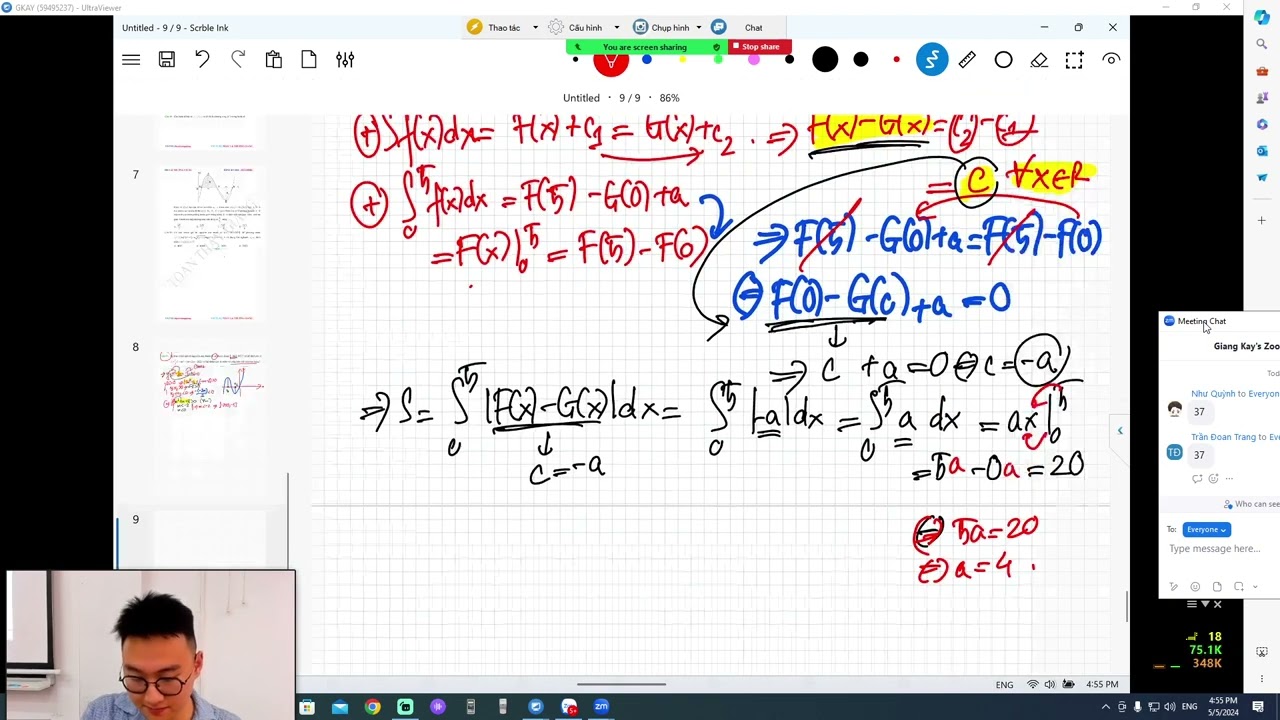 GKAY (59495237) - UltraViewer
Untitled - 9 / 9 - Scrble Ink
Thao tác
Cấu hình
Chụp hình
Chat
You are screen sharing
Stop share
Untitled · 9 / 9 · 86%
(+) ∫f(x)dx = F(x) + C₁ = G(x) + C₂ . ⇒ F(x) - G(x) = (C₂ - C₁)
= C ∀x∈R
(+) ∫₀⁵ f(x)dx = F(5) - G(0) + a
⇒ F(5) - G(0) + a = F(5) - F(0)
= F(x)|₀⁵ = F(5) - F(0)
⇔ F(0) - G(0) + a = 0
⇒ C + a = 0 ⇔ C = -a
⇒ S = ∫₀⁵ |F(x) - G(x)| dx = ∫₀⁵ |-a| dx = ∫₀⁵ a dx = ax|₀⁵
C = -a
= 5a - 0a = 20
⇔ 5a = 20
⇔ a = 4 .
7
8
9
Meeting Chat
Giang Kay's Zoo
Toda
Như Quỳnh to Everyon
37
Trần Đoan Trang to Eve
TĐ
37
Who can see
To: Everyone
Type message here...
18
75.1K
348K
ENG
4:55 PM
4:55 PM
5/5/2024